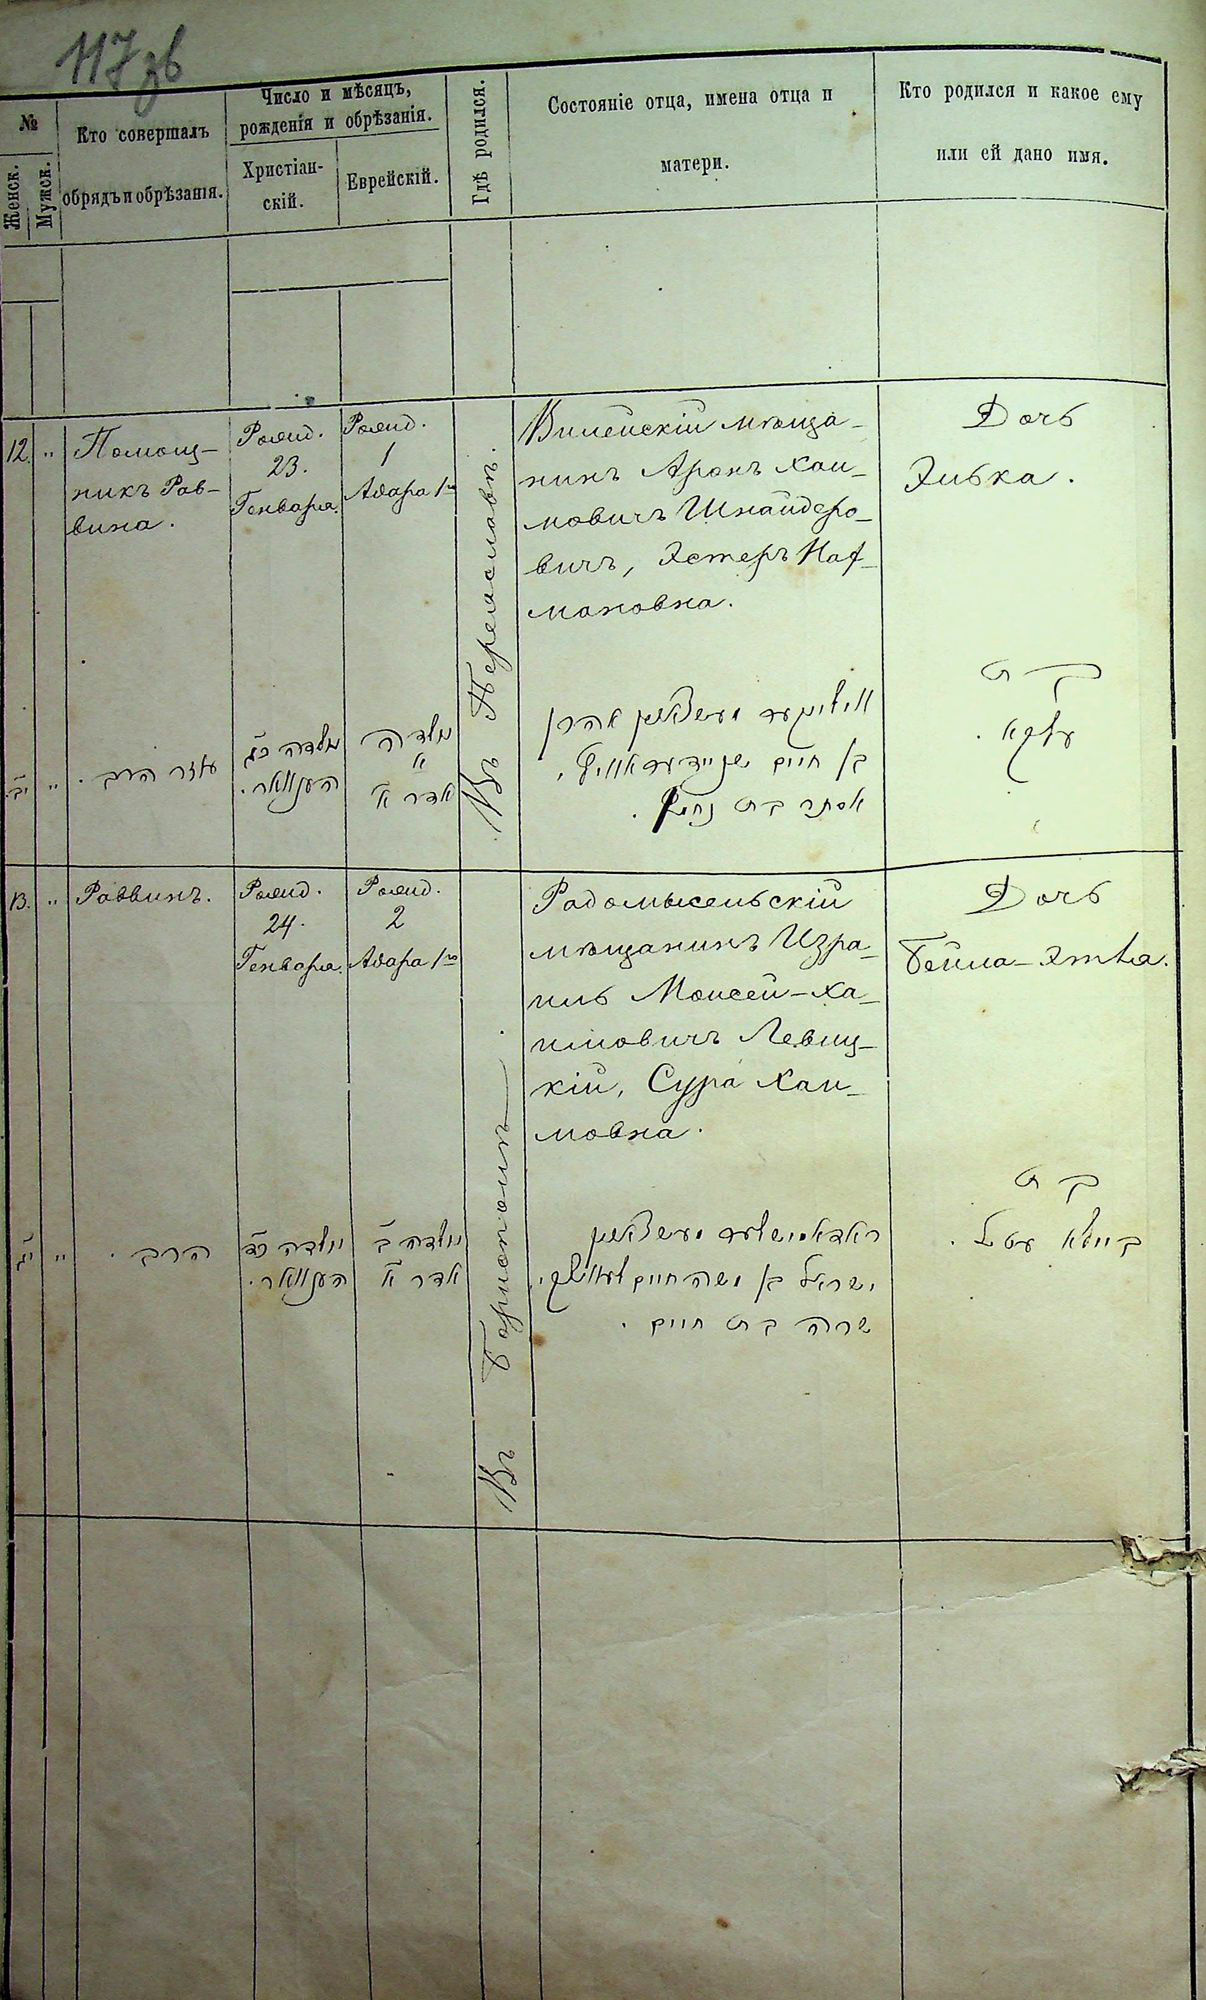 117 зв
№
Женск.
Мужск.
Кто совершалъ
обрядъ и обрѣзанія.
Число и мѣсяцъ,
рожденія и обрѣзанія.
Христіан-
скій.
Еврейскій.
Гдѣ родился.
Состояніе отца, имена отца и
матери.
Кто родился и какое ему
или ей дано имя.
12. „
Помощ-
никъ Рав-
вина.
Рожд.
23.
Генваря.
Рожд.
1
Адара 1го
Въ Переяславѣ.
Вилейскій мѣща-
нинъ Аронъ Хаи-
мовичъ Шнайдеро-
вичъ, Эстеръ Нах-
мановна.
Дочь
Элька.
יב. „
עוזר הרב.
נולדה כג
יענוואר.
נולדה
א
אדר א
אהרן
בן חיים שניידעראוויץ,
אסתר בת נחמן.
בת
עלקא.
13. „
Раввинъ.
Рожд.
24.
Генваря.
Рожд.
2
Адара 1го
Въ Борисполѣ.
Радомысельскій
мѣщанинъ Изра-
иль Моисей-Ха-
имовичъ Левиц-
кій, Сура Хаи-
мовна.
Дочь
Бейла-Этля.
יג „
הרב.
נולדה כד
יענוואר.
נולדה ב
אדר א
ישראל בן משה חיים לעוויצקי,
שרה בת חיים.
בת
ביילא עטל.